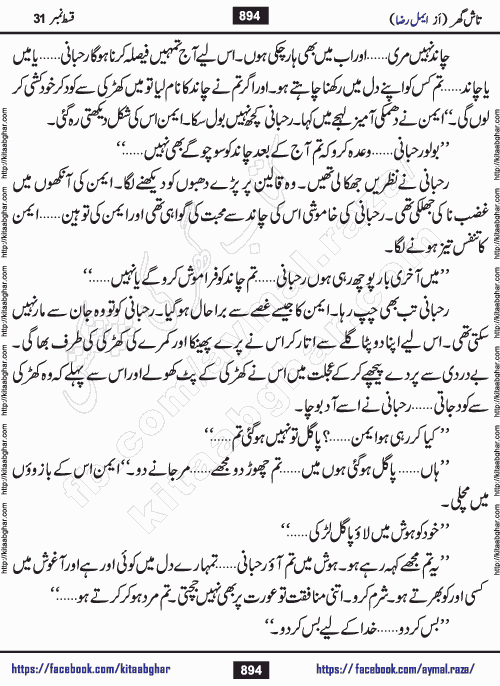 تاش گھر (از ایمل رضا) 894 قسط نمبر 31
چاند نہیں مری......اور اب میں بھی ہار چکی ہوں۔ اس لیے آج تمہیں فیصلہ کرنا ہوگا رحبانی......یا میں
یا چاند......تم کس کو اپنے دل میں رکھنا چاہتے ہو۔ اور اگر تم نے چاند کا نام لیا تو میں کھڑکی سے کود کر خودکشی کر
لوں گی۔‘‘ ایمن نے دھمکی آمیز لہجے میں کہا۔ رحبانی کچھ نہیں بول سکا۔ ایمن اس کی شکل دیکھتی رہ گئی۔
’’بولو رحبانی......وعدہ کرو کہ تم آج کے بعد چاند کو سوچو گے بھی نہیں......‘‘
رحبانی نے نظریں جھکا لی تھیں۔ وہ قالین پر پڑے دھبوں کو دیکھنے لگا۔ ایمن کی آنکھوں میں
غضب ناکی جھلکی تھی۔ رحبانی کی خاموشی اس کی چاند سے محبت کی گواہی تھی اور ایمن کی توہین......ایمن
کا تنفس تیز ہونے لگا۔
’’میں آخری بار پوچھ رہی ہوں رحبانی......تم چاند کو فراموش کرو گے یا نہیں......‘‘
رحبانی تب بھی چپ رہا۔ ایمن کا جیسے غصے سے برا حال ہوگیا۔ رحبانی کو تو وہ جان سے مار نہیں
سکتی تھی۔ اس لیے اپنا دوپٹا گلے سے اتار کر اس نے پرے پھینکا اور کمرے کی کھڑکی کی طرف بھاگی۔
بے دردی سے پردے پیچھے کر کے عجلت میں اس نے کھڑکی کے پٹ کھولے اور اس سے پہلے کہ وہ کھڑکی
سے کود جاتی......رحبانی نے اسے آ دبوچا۔
’’کیا کر رہی ہو ایمن......؟ پاگل تو نہیں ہوگئی تم......‘‘
’’ہاں...... پاگل ہوگئی ہوں میں......تم چھوڑ دو مجھے......مر جانے دو۔‘‘ ایمن اس کے بازوؤں
میں مچلی۔
’’خود کو ہوش میں لاؤ پاگل لڑکی......‘‘
’’یہ تم مجھے کہہ رہے ہو۔ ہوش میں تم آؤ رحبانی......تمہارے دل میں کوئی اور ہے اور آغوش میں
کسی اور کو بھرتے ہو۔ شرم کرو۔ اتنی منافقت تو عورت پر بھی نہیں جچتی۔ تم مرد ہو کر کرتے ہو......‘‘
’’بس کر دو......خدا کے لیے بس کر دو۔‘‘
https://facebook.com/kitaabghar 894 https://facebook.com/aymal.raza/
http://kitaabghar.com
fb.com/aymal.raza
kitaabghar.com